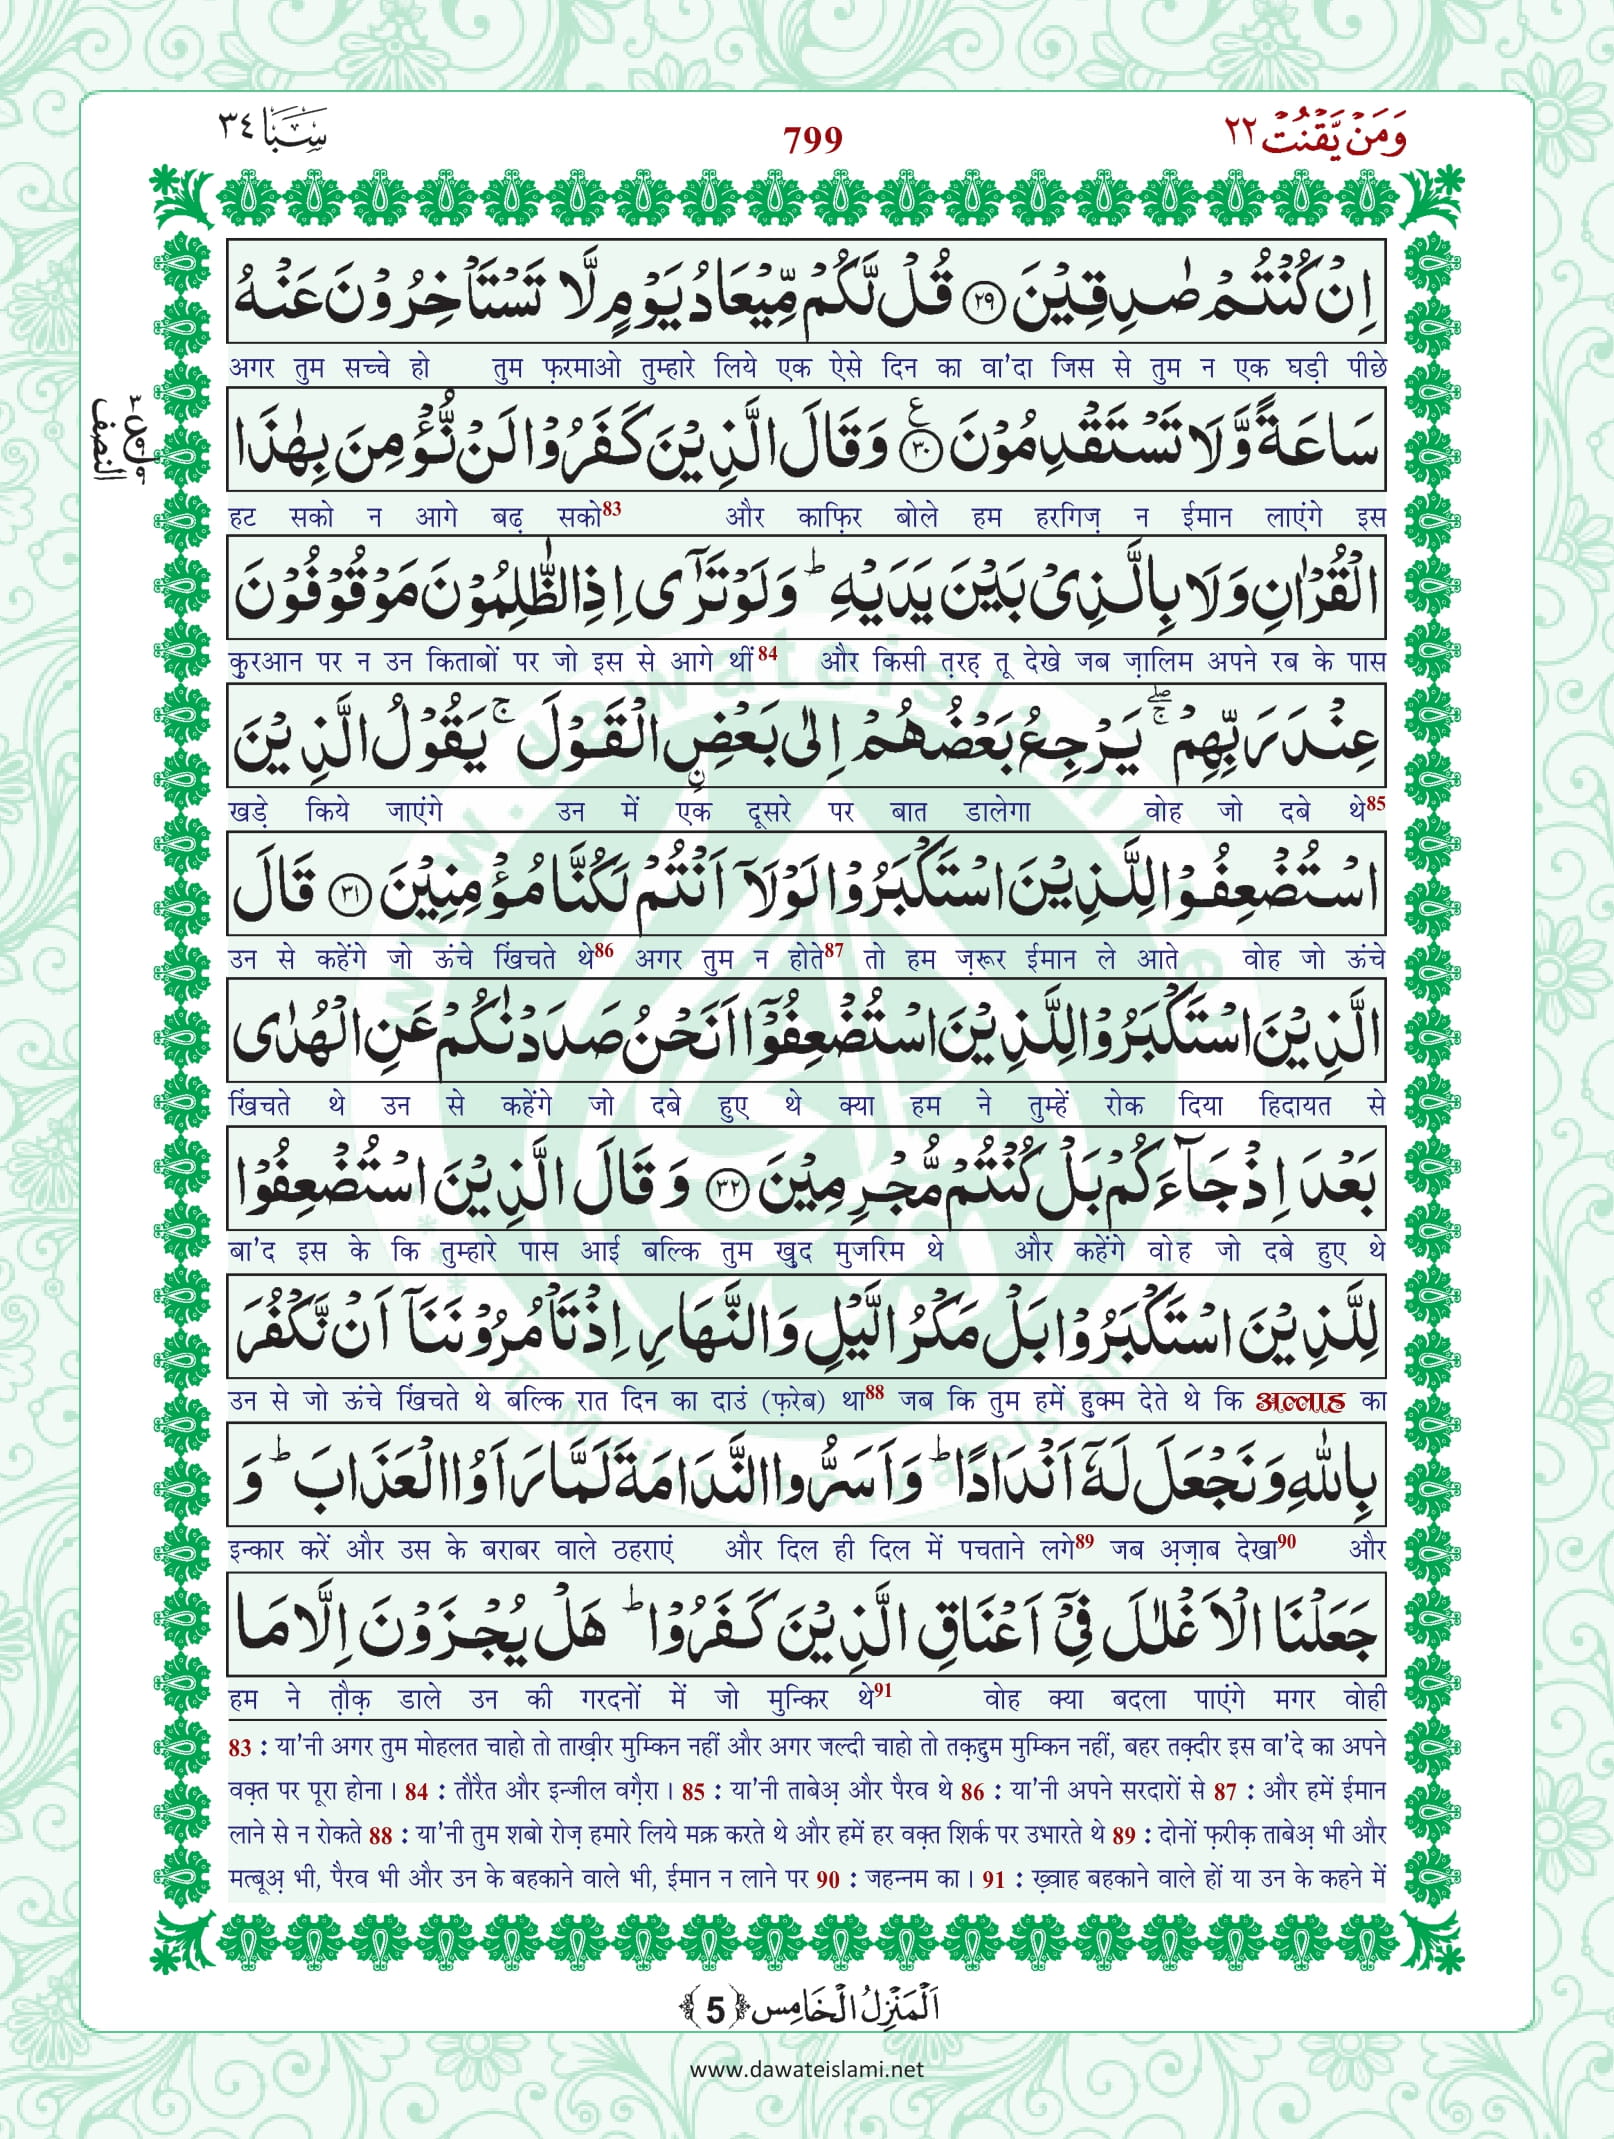 وَمَنْ يَّقْنُتْ ٢٢
799
سَبَا ٣٤
اِنْ كُنْتُمْ صٰدِقِیْنَ ﴿۲۹﴾ قُلْ لَّكُمْ مِّیْعَادُ یَوْمٍ لَّا تَسْتَاْخِرُوْنَ عَنْهُ
अगर तुम सच्चे हो तुम फ़रमाओ तुम्हारे लिये एक ऐसे दिन का वा'दा जिस से तुम न एक घड़ी पीछे
سَاعَةً وَّ لَا تَسْتَقْدِمُوْنَ ﴿۳۰﴾ ع وَ قَالَ الَّذِیْنَ كَفَرُوْا لَنْ نُّؤْمِنَ بِهٰذَا
النصف
हट सको न आगे बढ़ सको83 और काफ़िर बोले हम हरगिज़ न ईमान लाएंगे इस
الْقُرْاٰنِ وَ لَا بِالَّذِیْ بَیْنَ یَدَیْهِ ؕ وَ لَوْ تَرٰۤی اِذِ الظّٰلِمُوْنَ مَوْقُوْفُوْنَ
कुरआन पर न उन किताबों पर जो इस से आगे थीं84 और किसी त़रह़ तू देखे जब ज़ालिम अपने रब के पास
عِنْدَ رَبِّهِمْ ۖۚ یَرْجِعُ بَعْضُهُمْ اِلٰی بَعْضِ ِ۟الْقَوْلَ ۚ یَقُوْلُ الَّذِیْنَ
खड़े किये जाएंगे उन में एक दूसरे पर बात डालेगा वोह जो दबे थे85
اسْتُضْعِفُوْا لِلَّذِیْنَ اسْتَكْبَرُوْا لَوْ لَاۤ اَنْتُمْ لَكُنَّا مُؤْمِنِیْنَ ﴿۳۱﴾ قَالَ
उन से कहेंगे जो ऊंचे खिंचते थे86 अगर तुम न होते87 तो हम ज़रूर ईमान ले आते वोह जो ऊंचे
الَّذِیْنَ اسْتَكْبَرُوْا لِلَّذِیْنَ اسْتُضْعِفُوْۤا اَنَحْنُ صَدَدْنٰكُمْ عَنِ الْهُدٰی
खिंचते थे उन से कहेंगे जो दबे हुए थे क्या हम ने तुम्हें रोक दिया हिदायत से
بَعْدَ اِذْ جَآءَكُمْ بَلْ كُنْتُمْ مُّجْرِمِیْنَ ﴿۳۲﴾ وَ قَالَ الَّذِیْنَ اسْتُضْعِفُوْا
बा'द इस के कि तुम्हारे पास आई बल्कि तुम खुद मुजरिम थे और कहेंगे वोह जो दबे हुए थे
لِلَّذِیْنَ اسْتَكْبَرُوْا بَلْ مَكْرُ الَّیْلِ وَ النَّهَارِ اِذْ تَاْمُرُوْنَنَاۤ اَنْ نَّكْفُرَ
उन से जो ऊंचे खिंचते थे बल्कि रात दिन का दाउं (फ़रेब) था88 जब कि तुम हमें हुक्म देते थे कि अल्लाह का
بِاللّٰهِ وَ نَجْعَلَ لَهٗۤ اَنْدَادًا ؕ وَ اَسَرُّوا النَّدَامَةَ لَمَّا رَاَوُا الْعَذَابَ ؕ وَ
इन्कार करें और उस के बराबर वाले ठहराएं और दिल ही दिल में पचताने लगे89 जब अ़ज़ाब देखा90 और
جَعَلْنَا الْاَغْلٰلَ فِیْۤ اَعْنَاقِ الَّذِیْنَ كَفَرُوْا ؕ هَلْ یُجْزَوْنَ اِلَّا مَا
हम ने त़ौक़ डाले उन की गरदनों में जो मुन्किर थे91 वोह क्या बदला पाएंगे मगर वोही
83 : या'नी अगर तुम मोहलत चाहो तो ताख़ीर मुम्किन नहीं और अगर जल्दी चाहो तो तक़द्दुम मुम्किन नहीं, बहर तक़्दीर इस वा'दे का अपने
वक़्त पर पूरा होना। 84 : तौरैत और इन्जील वग़ैरा। 85 : या'नी ताबेअ़ और पैरव थे 86 : या'नी अपने सरदारों से 87 : और हमें ईमान
लाने से न रोकते 88 : या'नी तुम शबो रोज़ हमारे लिये मक्र करते थे और हमें हर वक़्त शिर्क पर उभारते थे 89 : दोनों फ़रीक़ ताबेअ़ भी और
मत्बूअ़ भी, पैरव भी और उन के बहकाने वाले भी, ईमान न लाने पर 90 : जहन्नम का। 91 : ख़्वाह बहकाने वाले हों या उन के कहने में
اَلْمَنْزِلُ الْخَامِس ﴿5﴾
www.dawateislami.net